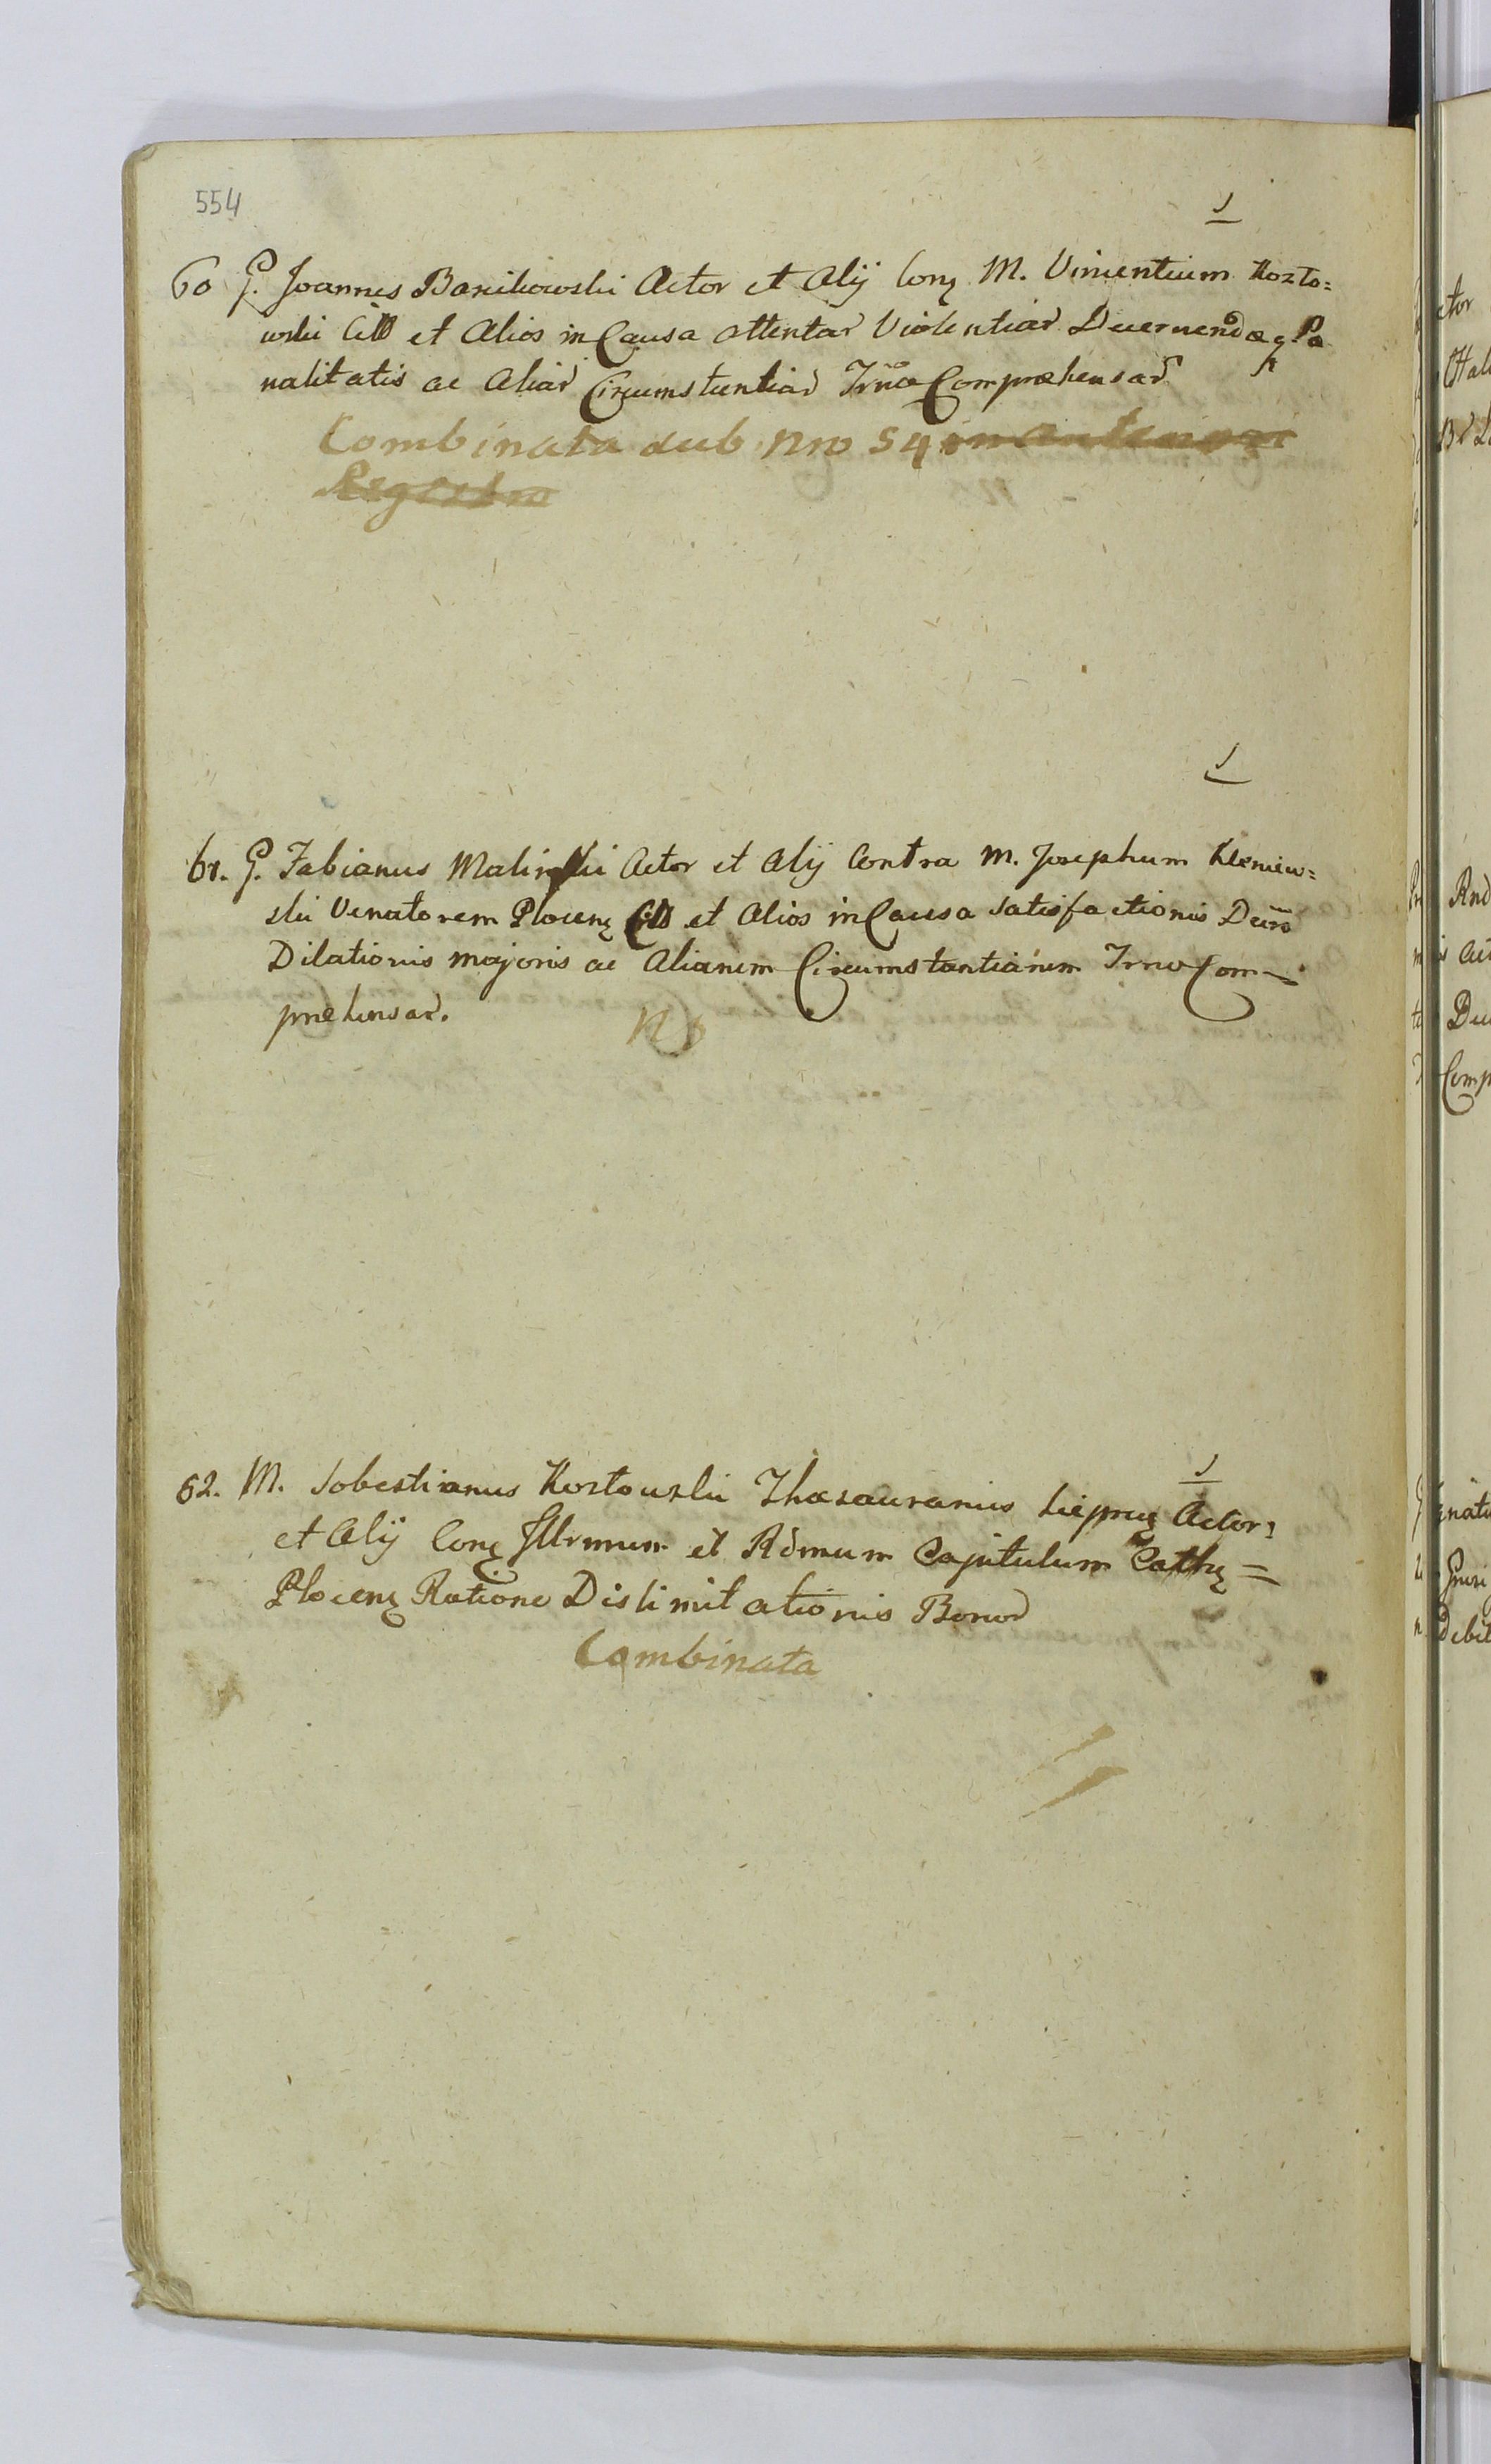 554
60 G. Joannes Barcikowski Actor et Alij Cont M. Vincentium Kozło=
wski Citt et Alios in Causa attentar Violentiar Decernendæq Pæ
nalitatis ac Aliar Circumstantiar Trno Comprehensar
Combinata sub Nro 54
Registro
61. G. Fabianus Malinski Actor et Alij Contra M. Josephum Kleniew=
ski Venatorem Plocens Citt et Alios in Causa Satisfactionis Decro
Dilationis majoris ac Aliarum Circumstantiarum Trno Com=
prehensar.
62. M. Sebastianus Kozłowski Thesaurarius Actor
et Alij Cons Illrmum et Rdmum Capitulum Cathe=
Plocens Ratione Dislimitationis Bonor
Combinata